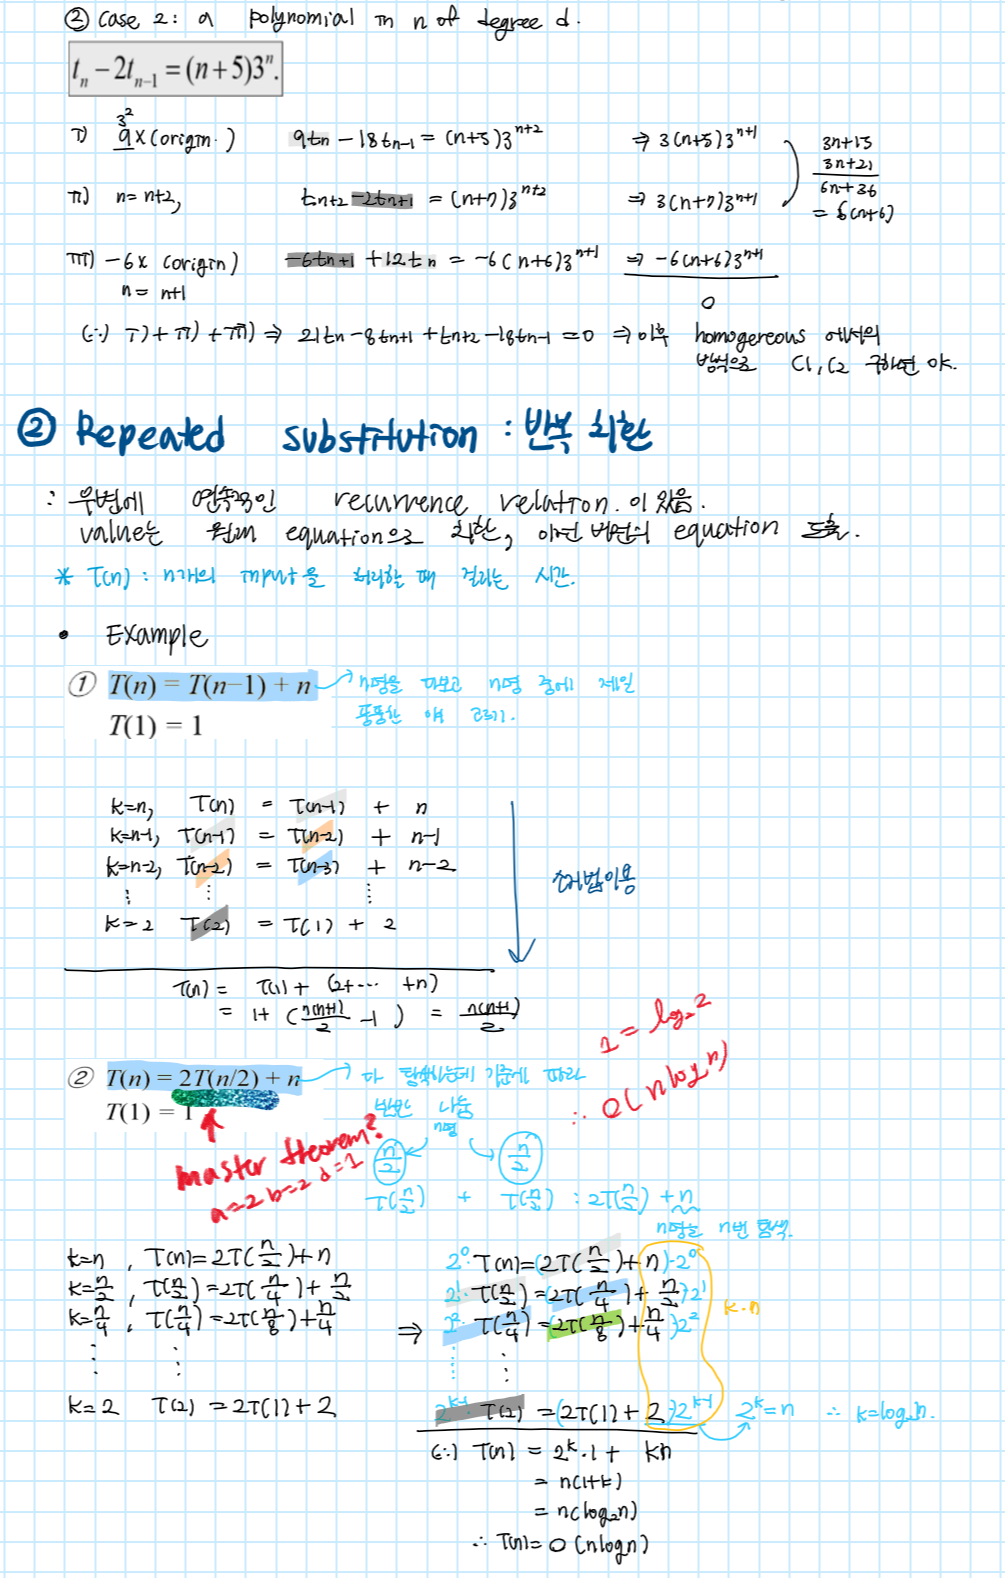 ② Case 2: a polynomial in n of degree d.
tₙ − 2tₙ₋₁ = (n+5)3ⁿ.
3²
i) 9×(origin.) 9tn −18tn-1 = (n+5)3ⁿ⁺² ⇒ 3(n+5)3ⁿ⁺¹
3n+15
3n+21
6n+36
= 6(n+6)
ii) n=n+2, tn+2 −2tn+1 = (n+7)3ⁿ⁺² ⇒ 3(n+7)3ⁿ⁺¹
iii) −6× (origin) −6tn+1 +12tn = −6(n+6)3ⁿ⁺¹ ⇒ −6(n+6)3ⁿ⁺¹
n= n+1
0
(∴) i)+ii)+iii) ⇒ 21tn −8tn+1 +tn+2 −18tn-1 =0 ⇒ 이후 homogereous 에서의
방식으로 C1, C2 구하면 OK.
② Repeated substitution : 반복 치환
: 우변에 연속적인 recurrence relation.이 있음.
value는 원래 equation으로 치환, 어떤 버전의 equation 도출.
* T(n) : n개의 input을 처리할 때 걸리는 시간.
• Example
① T(n) = T(n−1) + n
T(1) = 1
n명을 다보고 n명 중에 제일
뚱뚱한 애 고르기.
k=n, T(n) = T(n-1) + n
k=n-1, T(n-1) = T(n-2) + n-1
k=n-2, T(n-2) = T(n-3) + n-2
⋮ ⋮ ⋮
k=2 T(2) = T(1) + 2
소거법이용
T(n) = T(1) + (2+⋯ +n)
= 1+ (n(n+1)/2 −1) = n(n+1)/2
1 = log₂2
∴ O(nlogn)
② T(n) = 2T(n/2) + n
T(1) = 1
다 탐색하는데 기준에 따라
반반 나눔
n명
n/2 n/2
T(n/2) + T(n/2) : 2T(n/2) + n
n명은 n번 탐색.
master theorem?
a=2 b=2 d=1
k=n , T(n)=2T(n/2)+n
k=n/2 , T(n/2)=2T(n/4)+n/2
k=n/4 , T(n/4)=2T(n/8)+n/4
⋮ ⋮
k=2 T(2) = 2T(1)+2
⇒
2⁰· T(n)=(2T(n/2)+n)·2⁰
2¹· T(n/2)=(2T(n/4)+n/2)·2¹
2²· T(n/4)=(2T(n/8)+n/4)2²
⋮ ⋮
2ᵏ⁻¹· T(2) =(2T(1)+2)2ᵏ⁻¹ 2ᵏ=n ∴ k=log₂n.
k·n
(∴) T(n) = 2ᵏ·1 + kn
= n(1+k)
= n(log₂n)
∴ T(n)= O(nlogn)